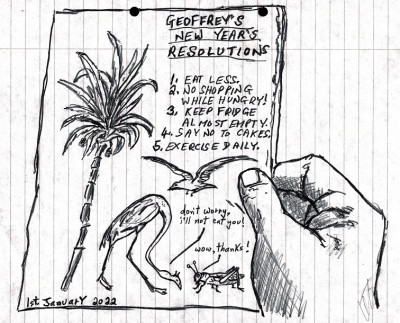 GEOFFREY'S
NEW YEAR'S
RESOLUTIONS
1. EAT LESS.
2. NO SHOPPING
WHILE HUNGRY!
3. KEEP FRIDGE
ALMOST EMPTY.
4. SAY NO TO CAKES.
5. EXERCISE DAILY.
don't worry,
i'll not eat you!
wow, thanks!
1st JanuarY 2022